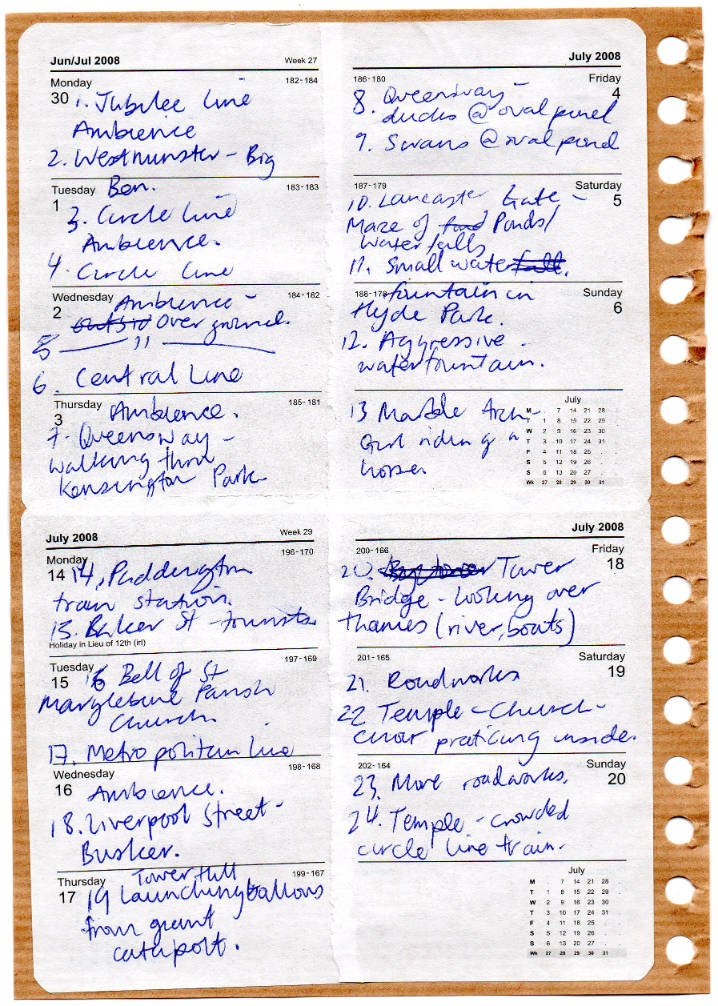 Jun/Jul 2008 Week 27
Monday 182-184
30 1. Jubilee line
Ambience
2. Westminster - Big
Ben.
Tuesday 183-183
1
3. Circle line
Ambience.
4. Circle line
Wednesday 184-182
Ambience -
2 outsid Over ground.
5 ——— " ———
6. Central Line
Thursday 185-181
Ambience.
3
7. Queensway -
walking thru
Kensington Park
July 2008
186-180 Friday
4
8. Queensway -
ducks @ oval pond
9. Swans @ oval pond
187-179 Saturday
5
10. Lancaster Gate -
Maze of Ponds/
waterfalls
11. Small waterfall.
188-178 Sunday
6
fountain in
Hyde Park.
12. Aggressive
waterfountain.
13 Marble Arch -
Girl riding a
horse.
July
M . 7 14 21 28 .
T 1 8 15 22 29 .
W 2 9 16 23 30 .
T 3 10 17 24 31 .
F 4 11 18 25 . .
S 5 12 19 26 . .
S 6 13 20 27 . .
Wk 27 28 29 30 31
July 2008 Week 29
Monday 196-170
14 14. Paddington
train station.
15. Baker St - tourists
Holiday in Lieu of 12th (irl)
Tuesday 197-169
15 16 Bell of St
Marylebone Parish
Church.
17. Metropolitan line
198-168
Wednesday
16 Ambience.
18. Liverpool Street -
Busker.
Thursday 199-167
Tower Hill
17 19 Launching ballons
from giant
catapolt.
July 2008
200-166 Friday
18
20. Tower
Bridge - looking over
thames (river, boats)
201-165 Saturday
19
21. Roadworks
22 Temple - Church -
choir practicing inside.
202-164 Sunday
20
23. More roadworks.
24. Temple - crowded
circle line train.
July
M . 7 14 21 28 .
T 1 8 15 22 29 .
W 2 9 16 23 30 .
T 3 10 17 24 31 .
F 4 11 18 25 . .
S 5 12 19 26 . .
S 6 13 20 27 . .
Wk 27 28 29 30 31